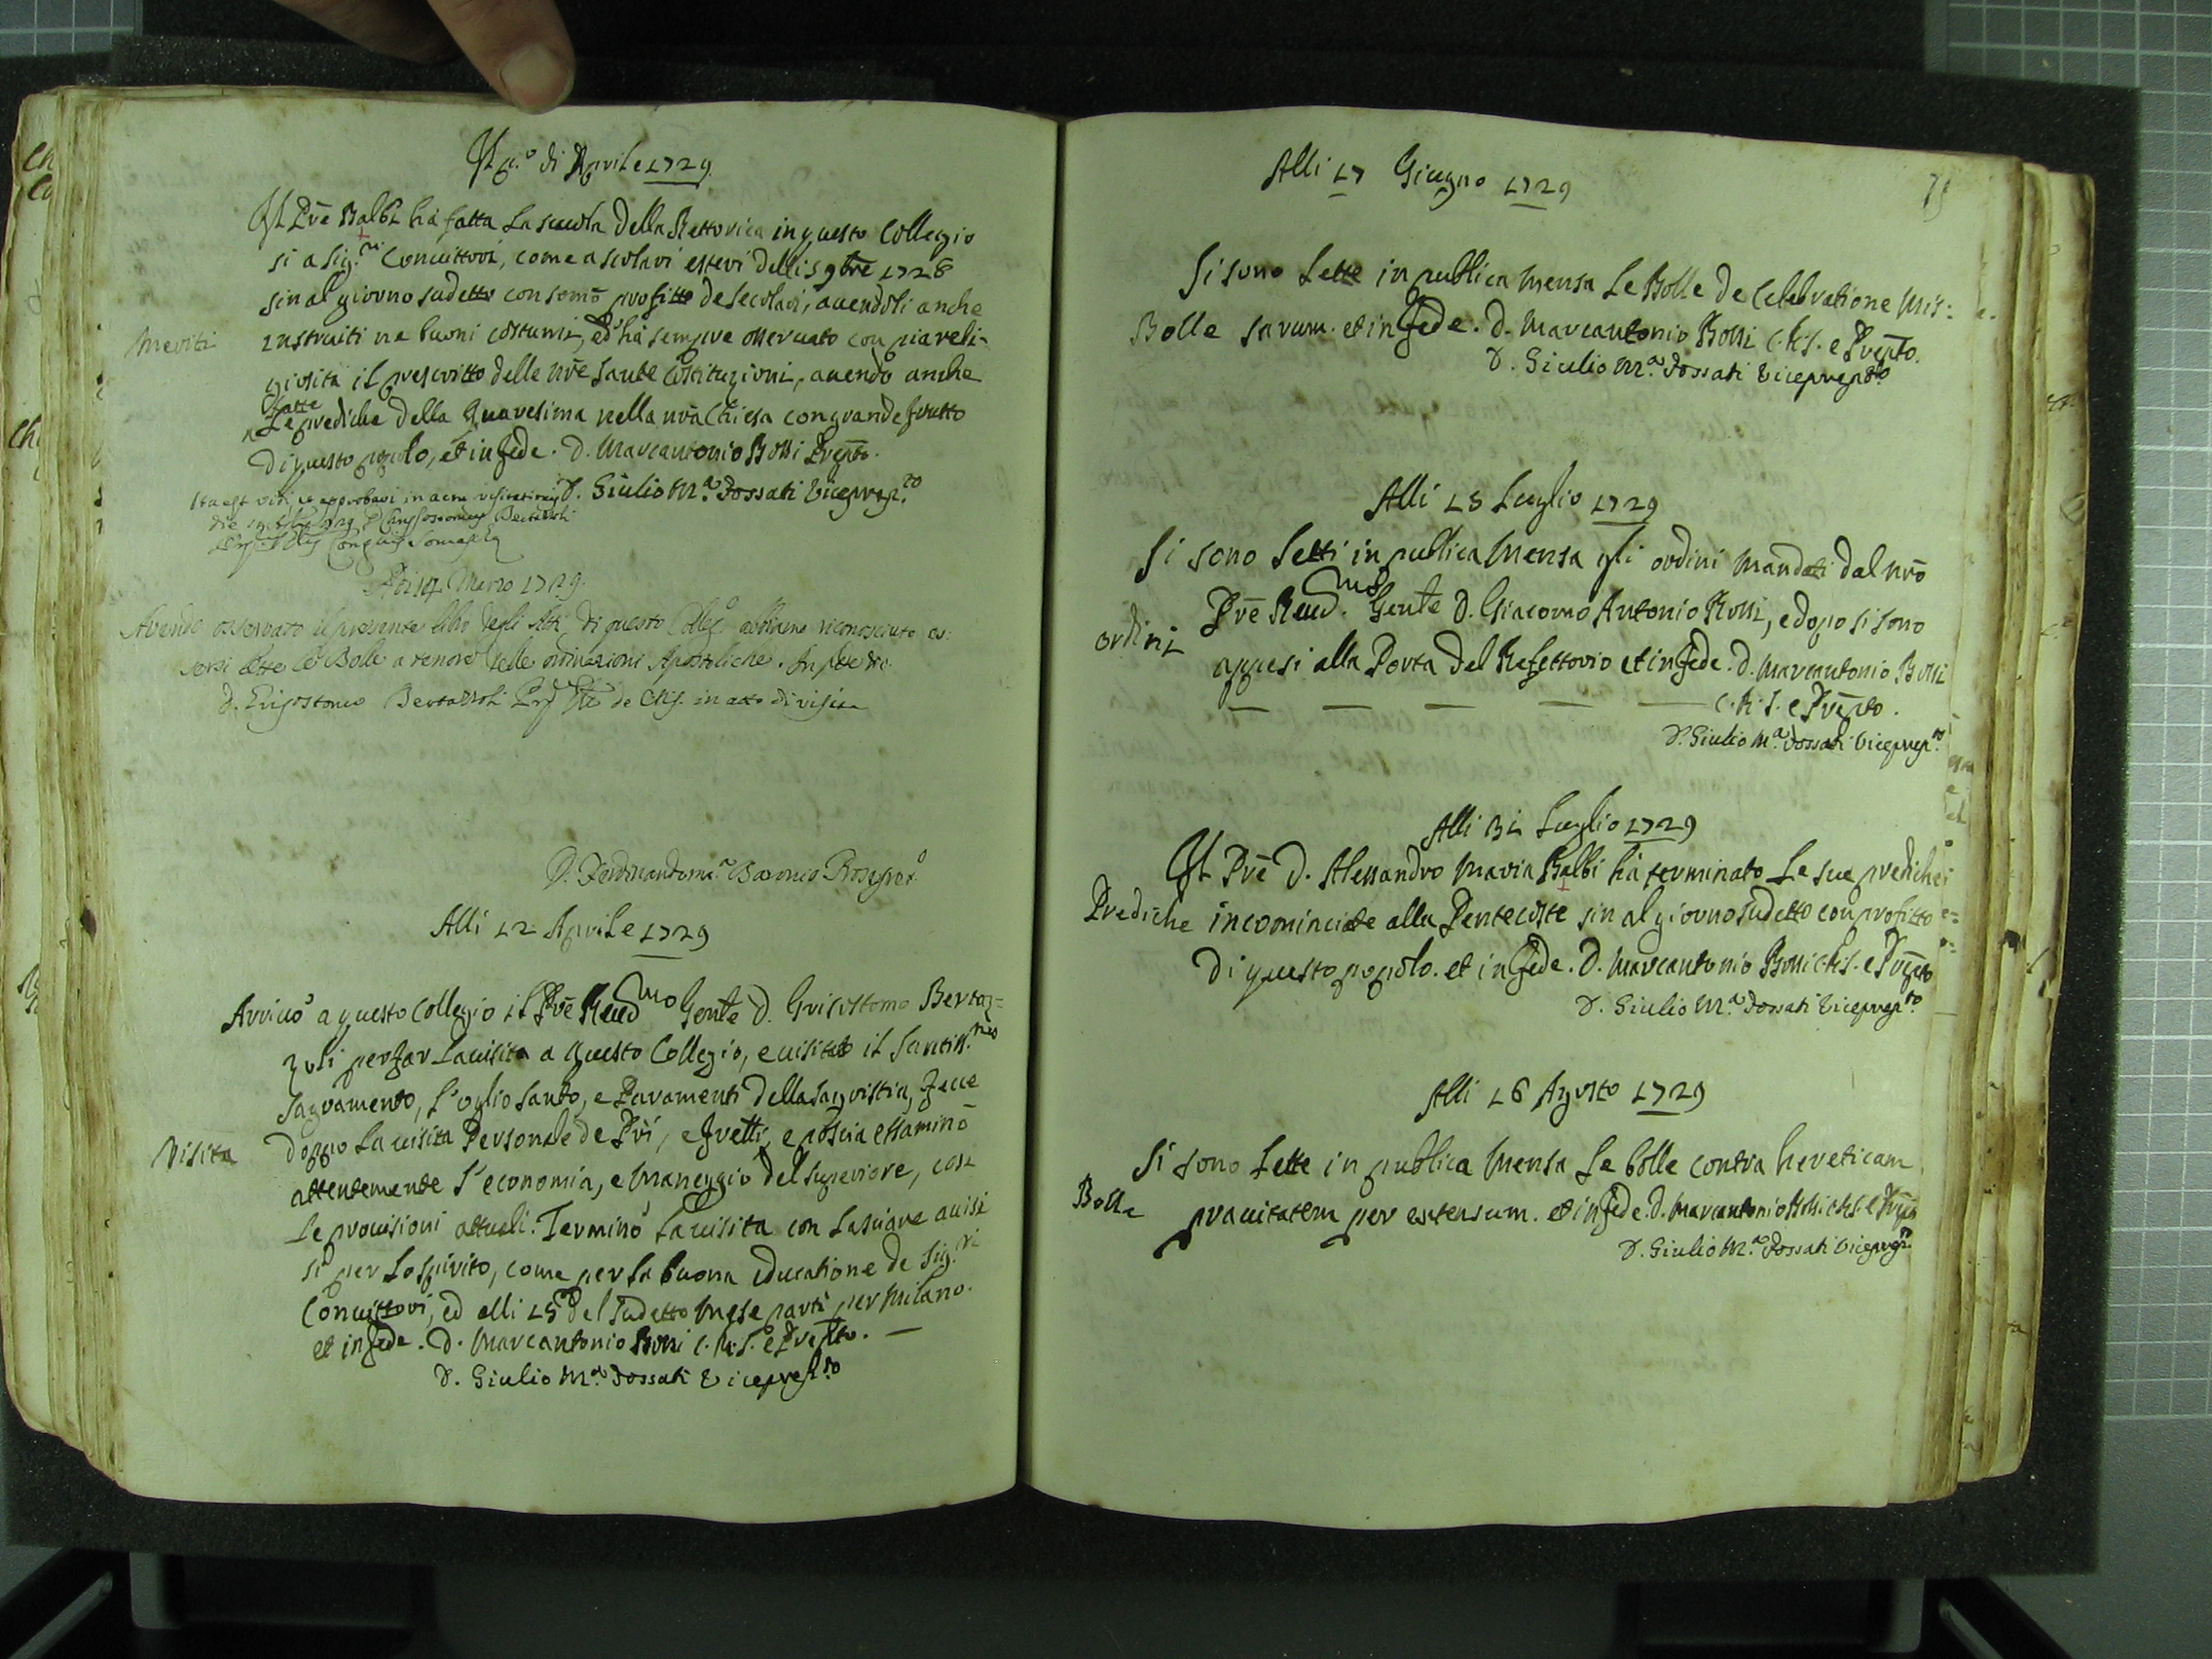 Il p.º di Aprile 1729
Il Prē Balbi hà fatta la scuola della Rettorica in questo Collegio
si a Sig.ri Conuittori, come a scolari esteri delli 5 9bre 1728
sin al giorno sudetto con somō profitto de scolari, auendoli anche
Meriti
instruiti ne buoni costumi, ed hà sempre osseruato con pia reli-
giosità il prescritto delle nrē Sante Costituzioni, auendo anche
fatte
le prediche della Quaresima nella nrā Chiesa con grande frutto
di questo popolo, et in fede. D. Marcantonio Rossi Prepto.
Ita est vidi, et approbavi in actu visitationis D. Giulio M.a Fossati Viceprep.to
die 1729 D. Chrysostomus Bertazzoli
Congnis Somaschæ
14 Marzo 1729.
Avendo osservato il presente libro degli Atti di questo Colleg.o abbiamo riconosciuto es:
sersi lette le Bolle a tenore delle ordinazioni Apostoliche. In fede
D. Grisostomo Bertazzoli in atto di visita
D. Ferdinandom.a Baronio
Alli 12 Aprile 1729
Arriuò a questo Collegio il Prē Reud.mo Gentle D. Grisostomo Bertaz=
zoli per far la uisita a questo Collegio, e uisitato il Santiss.mo
Sagramento, l'oglio santo, e Paramenti della Sagristia, fece
Visita
doppo la uisita Personale de Pri, e fretti, e poscia essaminò
attentemente l'economia, e maneggio del superiore, con
le prouisioni attuali. Terminò la uisita con lasciare auisi
sì per lo spirito, come per la buona educatione de Sig.ri
Conuittori, ed alli 15 del sudetto mese partì per Milano.
et in fede. D. Marcantonio Rossi C.R.S. e Prepto.
D. Giulio M.a Fossati Viceprep.to
75
Alli 17 Giugno 1729
Si sono lette in publica mensa le Bolle de Celebratione Mis:
Bolle
sarum. et in fede. D. Marcantonio Rossi C.R.S. e Prepto.
D. Giulio M.a Fossati Viceprep.to
Alli 15 Luglio 1729
Si sono letti in publica mensa gli ordini mandati dal nrō
Prē Reud.mo Gentle D. Giacomo Antonio Rossi, e dopo si sono
ordini
appesi alla Porta del Refettorio et in fede. D. Marcantonio Rossi
C.R.S. e Prepto.
D. Giulio M.a Fossati Viceprep.to
Alli 31 Luglio 1729
Il Prē D. Alessandro Maria Balbi hà terminato le sue prediche
Prediche
incominciate alla Pentecoste sin al giorno sudetto con profitto
di questo popolo. et in fede. D. Marcantonio Rossi C.R.S. e Prepto
D. Giulio M.a Fossati Viceprep.to
Alli 16 Agosto 1729
Si sono lette in publica mensa le bolle contra hereticam
Bolle
prauitatem per extensum. et in fede. D. Marcantonio Rossi C.R.S. e Prepto
D. Giulio M.a Fossati Viceprep.to